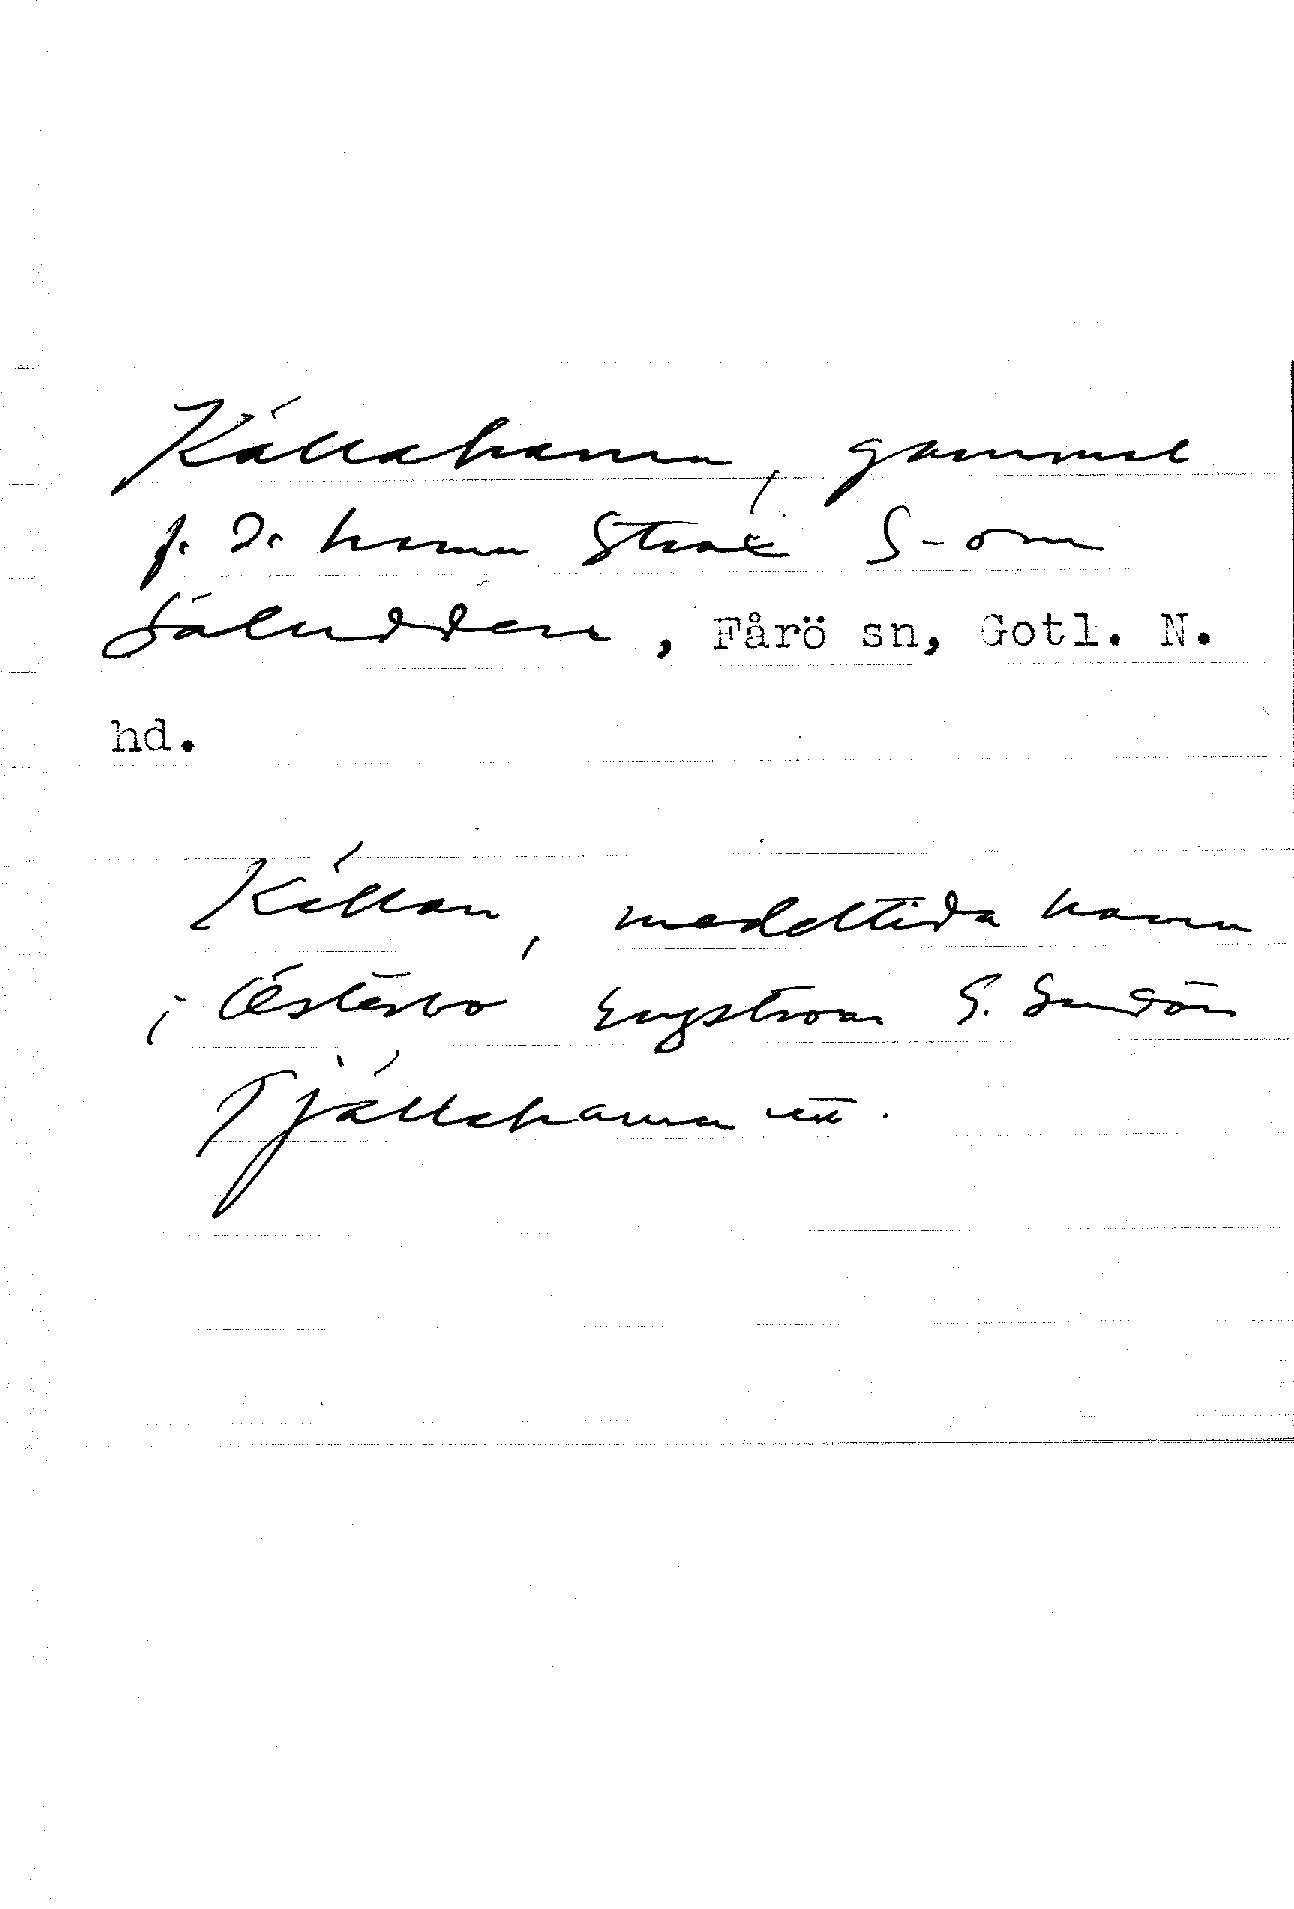 Källahamn, gammal
f. d. hamn strax S-om
Säludden, Fårö sn, Gotl. N.
hd.
Källan, medeltida hamn
i Österbo Engström G. Sudön
Tjällahamn utt.